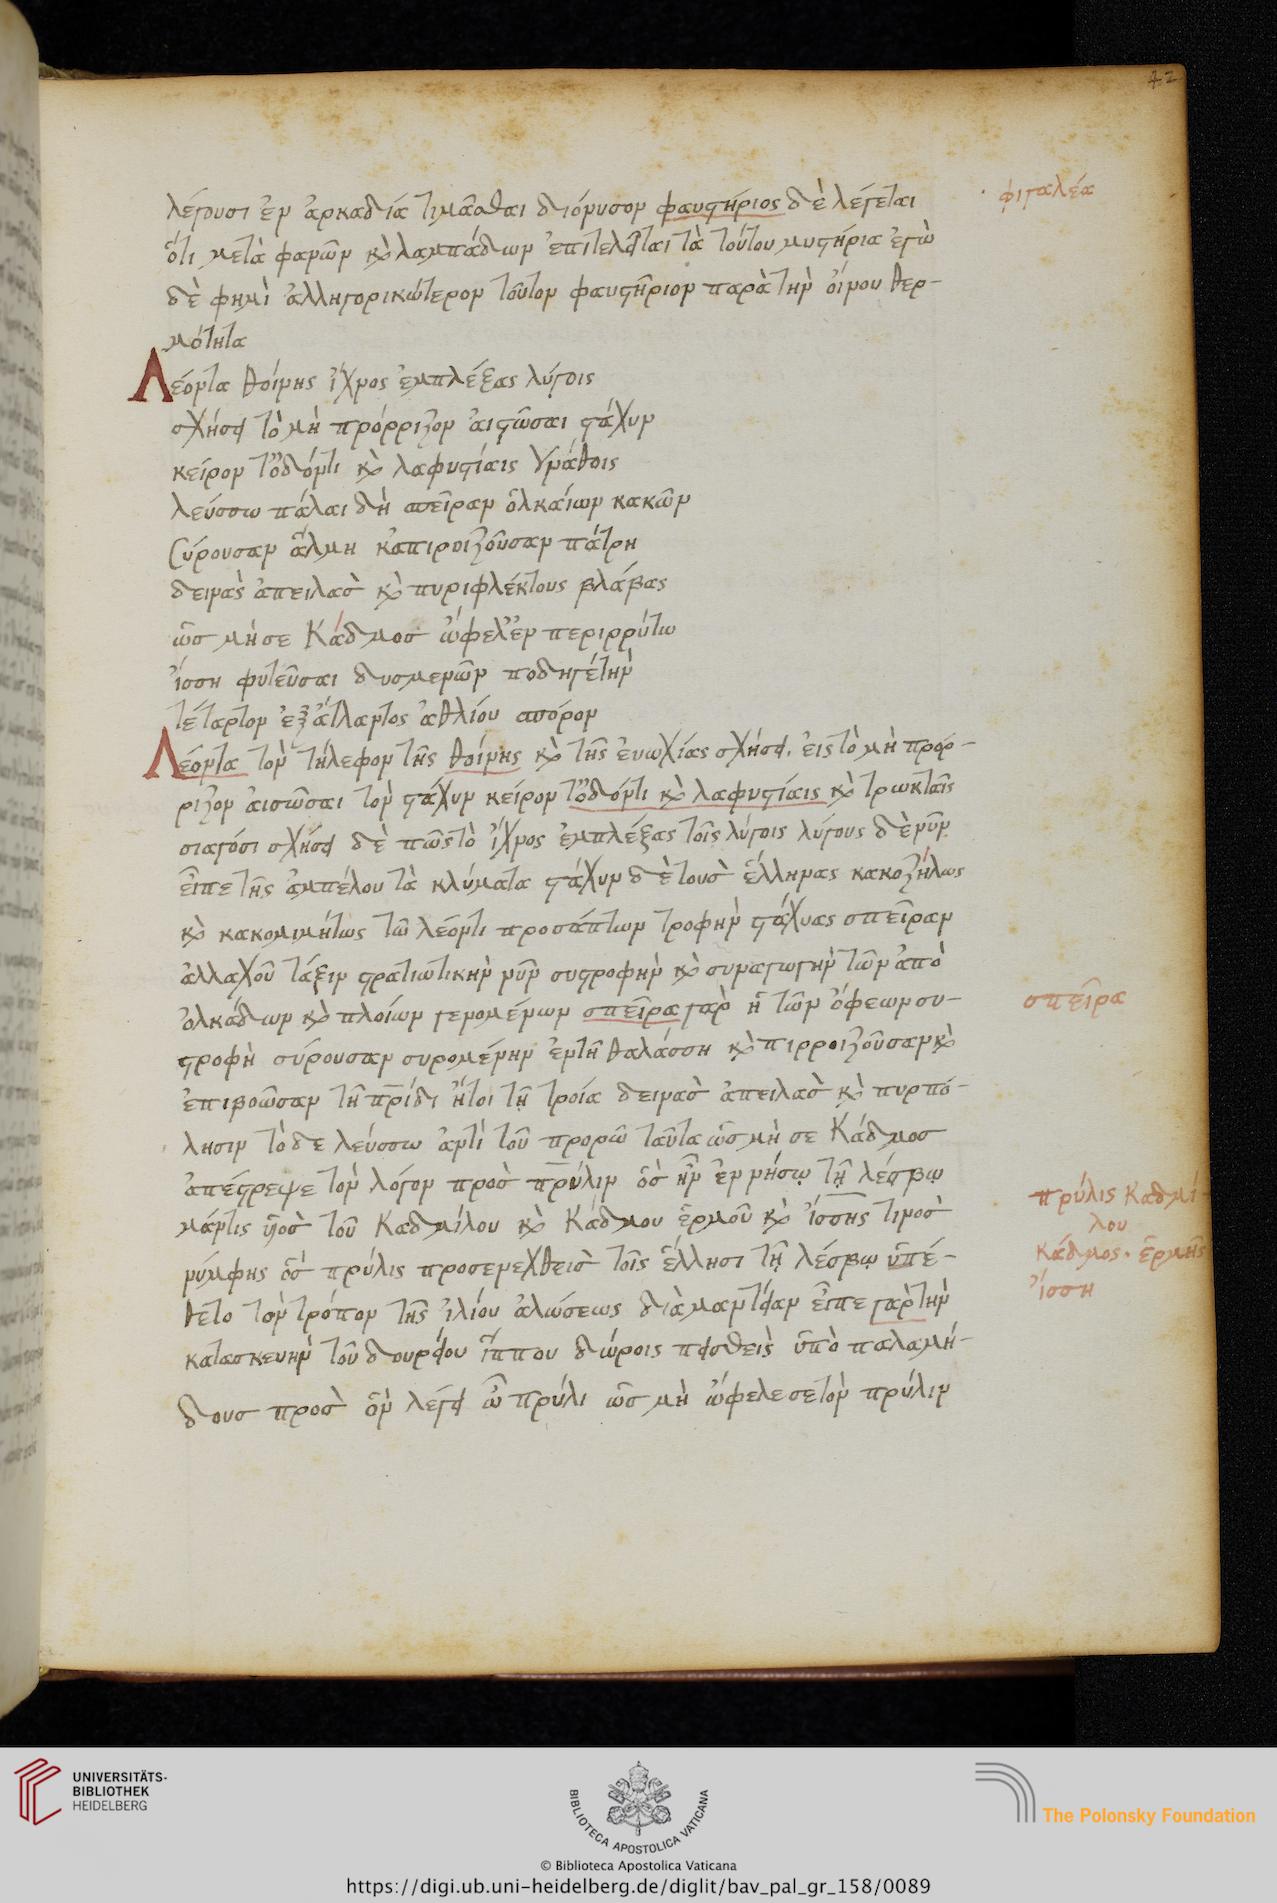 42
λέγουσι ἐν ἀρκαδία τιμᾶσθαι διόνυσον φαυστήριος δὲ λέγεται
φιγαλέα
ὅτι μετὰ φανῶν κὶ λαμπάδων ἐπιτελεῖται τὰ τούτου μυστήρια ἐγὼ
δὲ φημὶ ἀλληγορικώτερον τοῦτον φαυστήριον παρὰ τὴν οἴνου θερ-
μότητα
Λέοντα θοίνης ἴχνος ἐμπλέξας λύγοις
σχήσει τὸ μὴ πρόρριζον ἀιστῶσαι στάχυν
κείροντ᾽ ὀδόντι κὶ λαφυστίαις γνάθοις
λεύσσω πάλαι δὴ σπεῖραν ὁλκαίων κακῶν
σύρουσαν ἅλμη κἀπιροιζοῦσαν πάτρη
δεινὰς ἀπειλὰς κὶ πυριφλέκτους βλάβας
ὡς μή σε Κάδμος ὤφελ᾽ ἐν περιρρύτω
ἴσση φυτεῦσαι δυσμενῶν ποδηγέτην
τέταρτον ἐξ ἄτλαντος ἀθλίου σπόρον
Λέοντα τὸν τήλεφον τῆς θοίνης κὶ τῆς ἐυωχίας σχήσει. εἰς τὸ μὴ πρόρ-
ριζον ἀιστῶσαι τὸν στάχυν κείροντ᾽ ὀδόντι κὶ λαφυστίαις κὶ τρωκταῖς
σιαγόσι σχήσει δὲ πῶς τὸ ἴχνος ἐμπλέξας τοῖς λύγοις λύγους δὲ νῦν
εἶπε τῆς ἀμπέλου τὰ κλύματα στάχυν δὲ τοὺς ἕλληνας κακοζήλως
κὶ κακομιμήτως τῶ λέοντι προσάπτων τροφὴν στάχυας σπεῖραν
ἀλλαχοῦ τάξιν στρατιωτικὴν νῦν συστροφὴν κὶ συναγωγὴν τῶν ἀπὸ
ὁλκάδων κὶ πλοίων γενομένων σπεῖρα γὰρ ἡ τῶν ὄφεων συ-
σπεῖρα
στροφὴ σύρουσαν συρομένην ἐν τῆ θαλάσση κὶ πιρροιζοῦσαν κὶ
ἐπιβοῶσαν τῆ πρίδι ἤτοι τῇ τροία δεινὰς ἀπειλὰς κὶ πυρπό-
λησιν τὸ δε λεύσσω ἀντὶ τοῦ προρῶ ταῦτα ὡς μή σε Κάδμος
ἀπέστρεψε τὸν λόγον πρὸς πρύλιν ὃς ἦν ἐν νήσῳ τῇ λέσβῳ
πρύλις Καδμί-
λου
μάντις υἱὸς τοῦ Καδμίλου κὶ Κάδμου ἑρμοῦ κὶ ἴσσης τινὸς
Κάδμος. ἑρμῆς
νύμφης ὃς πρύλις προσενεχθεὶς τοῖς ἕλλησι τῇ λέσβῳ ὑπέ-
ἴσση
θετο τὸν τρόπον τῆς ἰλίου ἁλώσεως διὰ μαντείαν εἶπε γὰρ τὴν
κατασκευὴν τοῦ δουρείου ἵππου δώροις πεισθεὶς ὑπὸ παλαμή-
δους πρὸς ὃν λέγει ὦ πρύλι ὡς μὴ ὤφελε σε τὸν πρύλιν
UNIVERSITÄTS-
BIBLIOTHEK
HEIDELBERG
BIBLIOTECA APOSTOLICA VATICANA
The Polonsky Foundation
© Biblioteca Apostolica Vaticana
https://digi.ub.uni-heidelberg.de/diglit/bav_pal_gr_158/0089